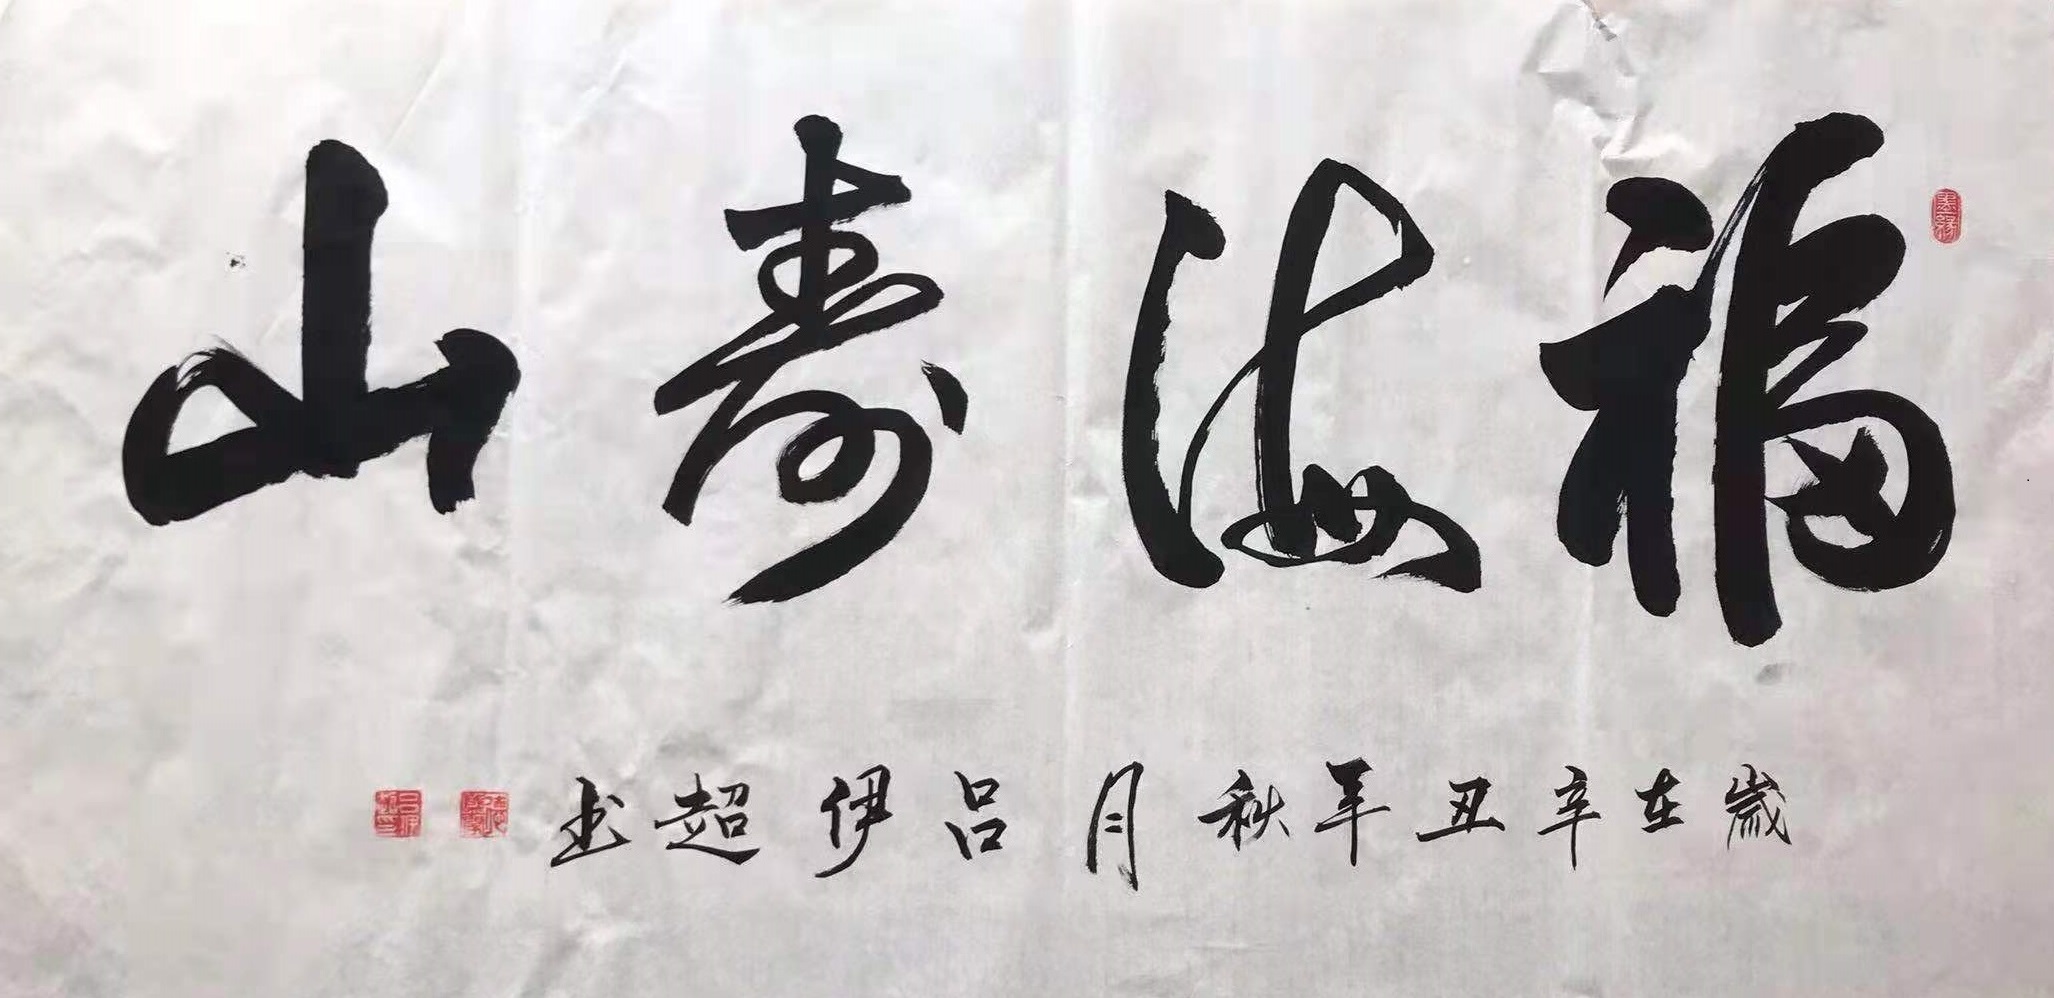 福海寿山
歲在辛丑年秋月吕伊超书